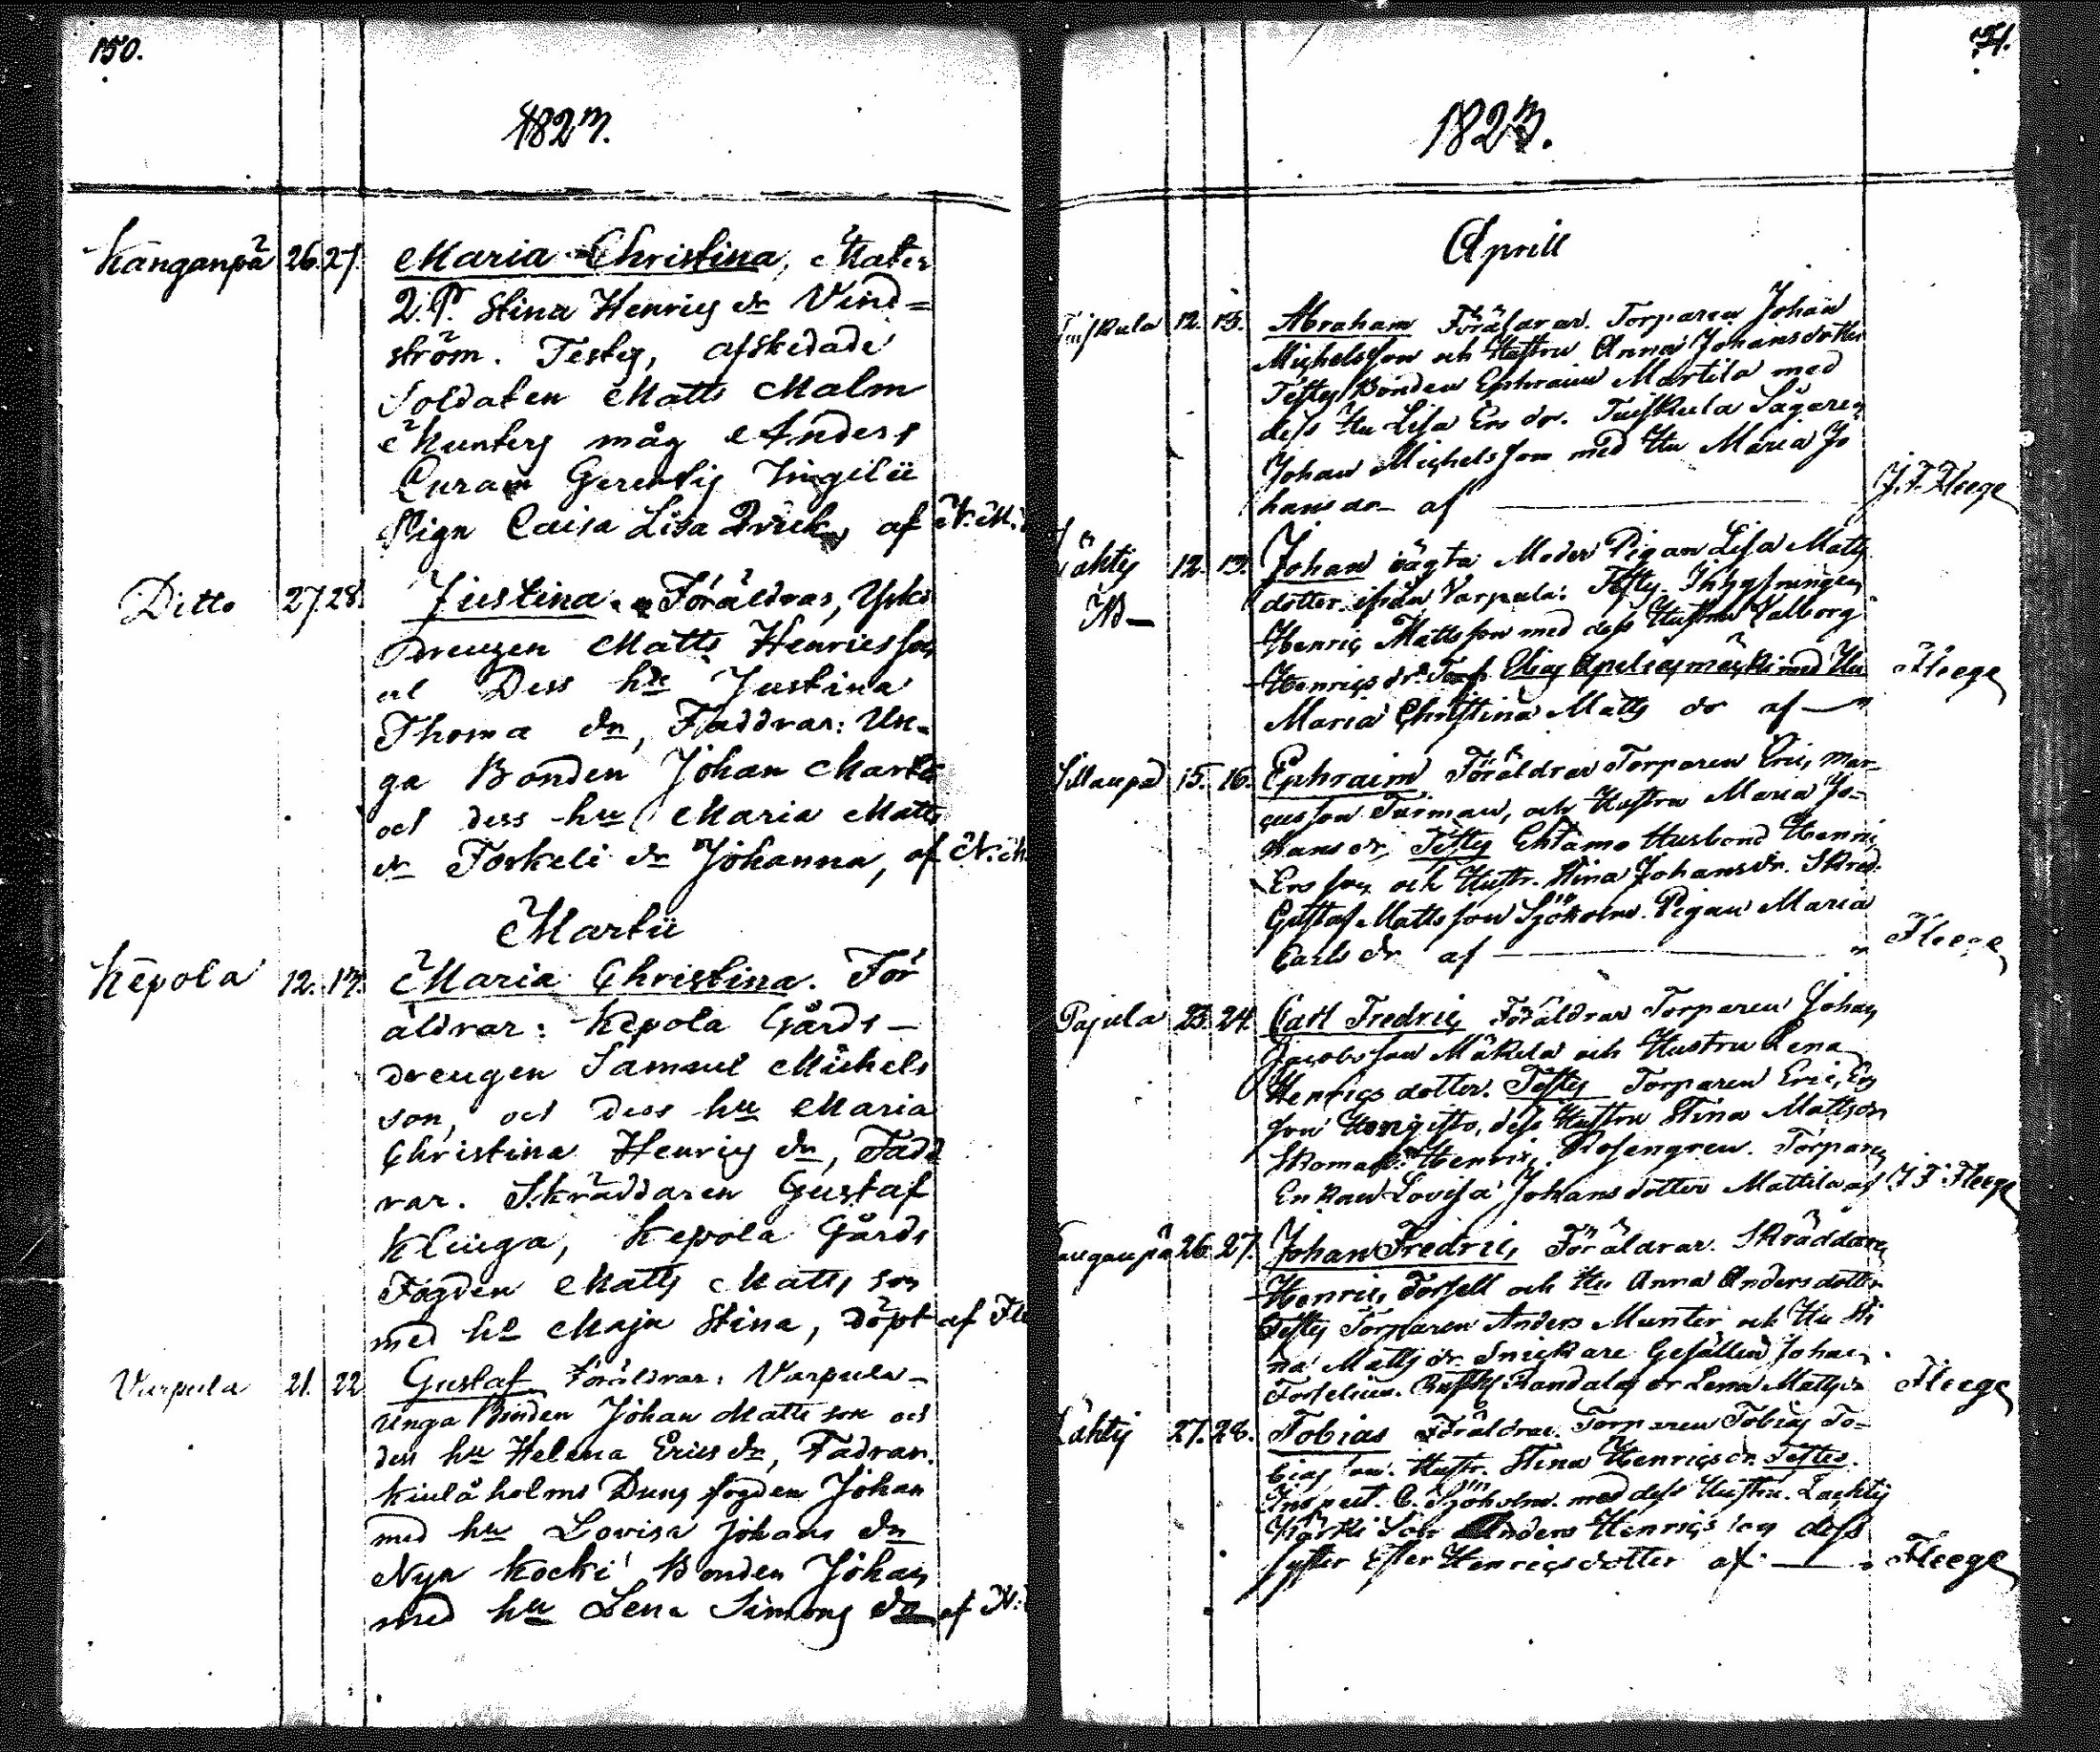 150.
1823.
Kanganpä 26. 27. Maria Christina, Mater
Q. P. Stina Henrics dr Vind=
ström. Testes, afskedade
Soldaten Matts Malm
Munters måg Anders
Curam Gerentis Ingilii
Pign Caisa Lisa Qvick, af N. M.
Ditto 27 28 Justina. Föräldrar,
Drengen Matts Henricsson
och Dess hu Justina
Thoma dr, Faddrar: Un-
ga Bonden Johan
och dess hu Maria Matts
dr Torkeli dr Johanna, af N. M.
Martii
Kepola 12. 13. Maria Christina. För
äldrar: Kepola Gårds-
drengen Samuel Michels
son, och dess hu Maria
Christina Henrics dr, Fadd
rar. Skräddaren Gustaf
Klinga, Kepola Gårds
Fogden Matts Matts son
med hu Maja Stina, döpt af
Varpula 21. 22 Gustaf Föräldrar: Varpula-
unga Bonden Johan Matts son och
dess hu Helena Erics dr, Fadrar.
Kiulåholms Dings fogden Johan
med hu Lovisa Johans dr
Nya Kocki Bonden Johan
med hu Lena Simons dr af N.
1823.
Aprill
12. 13. Abraham Föräldrar. Torparen Johan
Michelsson och Hustru Anna Johansdotter
Testes Bonden Ephraim Martila med
dess Hu Lisa Ers dr. Tuiskula Sågaren
Johan Michelsson med Hu Maria Jo
hans dr af J. F. Fleege
Lähty 12. 13. Johan oägta Moder Pigan Lisa Matts
NB- dotter ifrån Varpula. Testes Inhysningen
Henric Mattsson med dess Hustru Valborg
Henrics dr. Elias med Hu Fleege
Maria Christina Matts dr af "
15. 16. Ephraim Föräldrar Torparen Eric Mar-
cusson Turman, och Hustru Maria Jo-
hans dr, Testes Ehtamo Husbond Henric
Ersson och Hustr. Stina Johansdr. Skred.
Gustaf Mattsson Sjöholm. Pigan Maria
Carls dr af " Fleege
Pajula 23. 24. Carl Fredric Föräldrar Torparen Johan
Jacobsson Mäkelä och Hustru Lena
Henricsdotter. Testes Torparen Eric Ers
son Hongisto, dess Hustru Stina Mattsdr
Skomak. Henric Rosengren. Torpare
Enkan Lovisa Johansdotter Mattila af J F Fleege
Kangaupä 26. 27. Johan Fredric, Föräldrar. Skräddare
Henric Forsell och Hu Anna Andersdotter
Testes Torparen Anders Munter och Hu Sti
na Matts dr. Snickare Gesällen Johan
Forselius. Randala dr Lena Matts dr Fleege
Lähty 27. 28. Tobias Föräldrar Torparen Tobias To-
bias son. Hustr. Stina Henrics dr. Testes.
Inspect. C. Sjöholm. med dess Hustru. Laehty
Kärki Son Anders Henrics son dess
syster Ester Henricsdotter af " Fleege